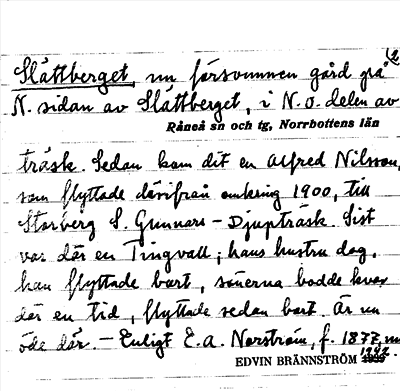 (2
Slåttberget, nu försvunnen gård på
N. sidan av Slåttberget, i N.O. delen av
Råneå sn och tg, Norrbottens län
träsk. Sedan kom dit en Alfred Nilsson,
som flyttade därifrån omkring 1900, till
Storberg S. Gunnars-Djupträsk. Sist
var där en Tingvall; hans hustru dog,
han flyttade bort, sönerna bodde kvar
där en tid, flyttade sedan bort. Är nu
öde där. - Enligt E.A. Norström, f. 1872,
EDVIN BRÄNNSTRÖM 1922.